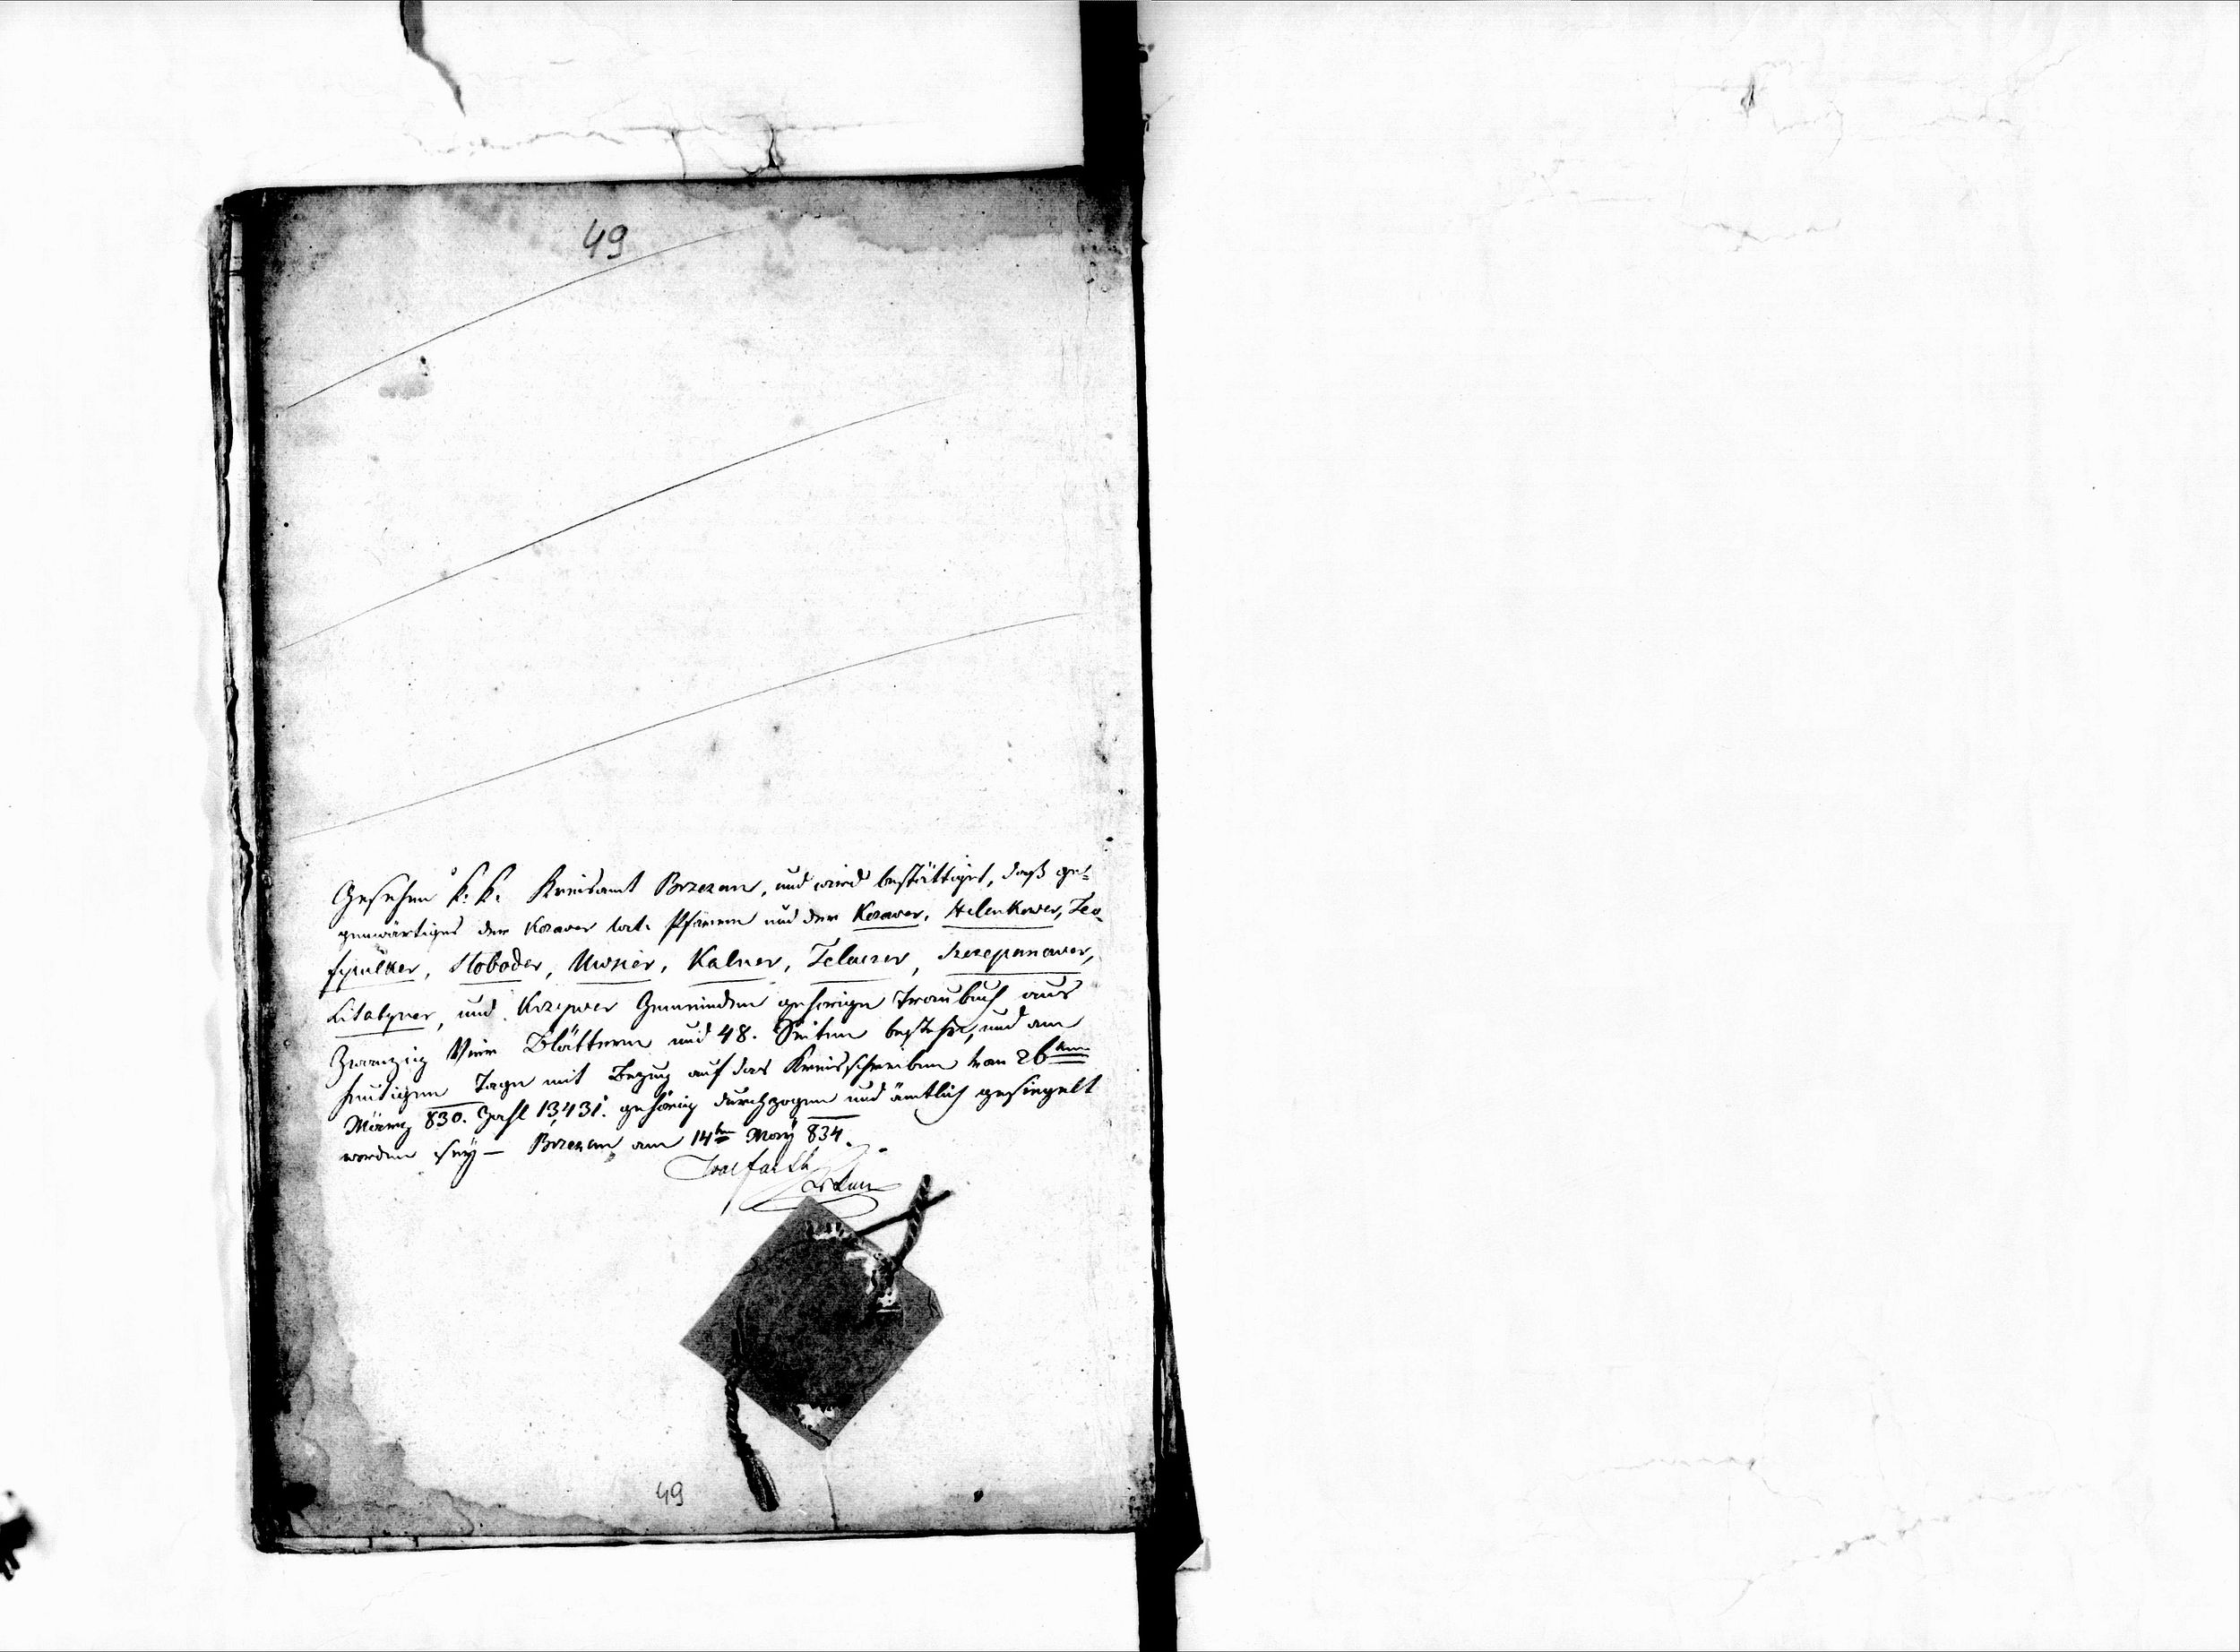 49
Gesehen k. k. Kreisamt Brzezan, und wird bestättiget, daß ge-
genwärtiges der Kozower lat. Pfarre und der Kozower, Helenkower, Teo-
fipulker, Sloboder, Uwsier, Kalner, Telaczer, Szczepanower,
Litatyner, und Krzywer Gemeinden gehörige Traubuch aus
Zwanzig Vier Blättern und 48. Seiten bestehe, und am
heutigen Tage mit Bezug auf das Kreisschreiben vom 26ten
März 830. Zahl 13431. gehörig durchzogen und ämtlich gesiegelt
worden sey — Brzezan am 14ten May 834.
49